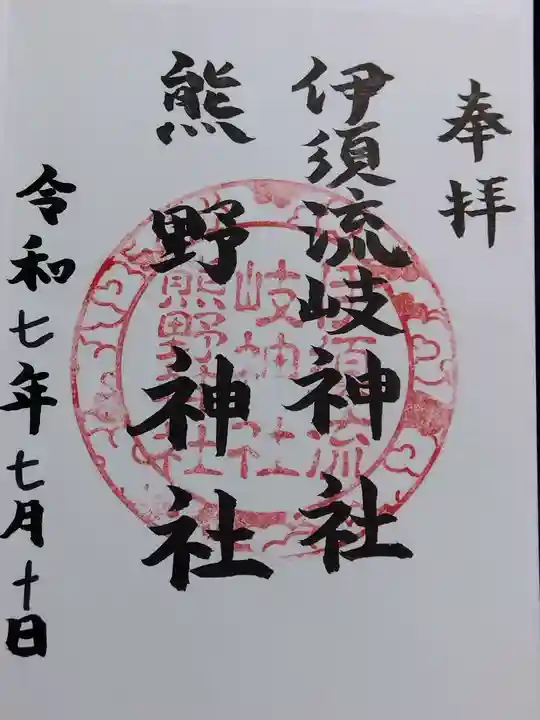 奉拝
伊須流岐神社
熊野神社
令和七年七月十日
伊須流
岐神社
熊野神社